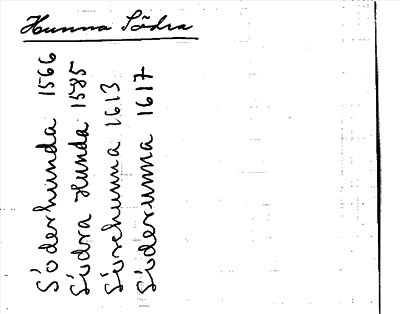 Hunna Södra
Söderhunda 1566
Södra Hunda 1585
Sörehunna 1613
Söderunna 1617